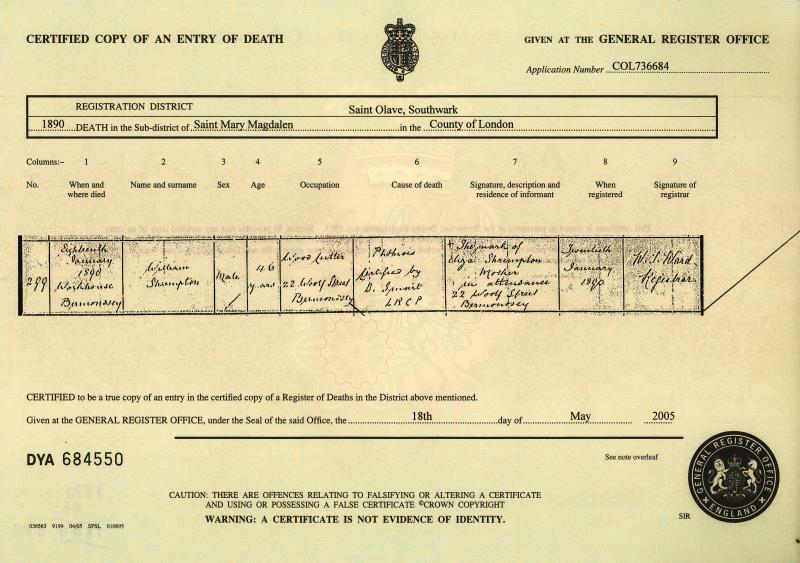 CERTIFIED COPY OF AN ENTRY OF DEATH
GIVEN AT THE GENERAL REGISTER OFFICE
Application Number COL736684
REGISTRATION DISTRICT Saint Olave, Southwark
1890 DEATH in the Sub-district of Saint Mary Magdalen in the County of London
Columns:- 1 2 3 4 5 6 7 8 9
No. When and where died Name and surname Sex Age Occupation Cause of death Signature, description and residence of informant When registered Signature of registrar
299
Eighteenth
January
1890
Workhouse
Bermondsey
William
Shrimpton
Male
46
years
Wood Cutter
22 Woolf Street
Bermondsey
Phthisis
Certified by
D. Smart
LRCP
X The mark of
Eliza Shrimpton
Mother
in attendance
22 Woolf Street
Bermondsey
Twentieth
January
1890
Ward
Registrar
CERTIFIED to be a true copy of an entry in the certified copy of a Register of Deaths in the District above mentioned.
Given at the GENERAL REGISTER OFFICE, under the Seal of the said Office, the 18th day of May 2005
DYA 684550
See note overleaf
CAUTION: THERE ARE OFFENCES RELATING TO FALSIFYING OR ALTERING A CERTIFICATE
AND USING OR POSSESSING A FALSE CERTIFICATE ©CROWN COPYRIGHT
WARNING: A CERTIFICATE IS NOT EVIDENCE OF IDENTITY.
GENERAL REGISTER OFFICE
ENGLAND
SIR
036563 9199 04/05 SPSL 010695